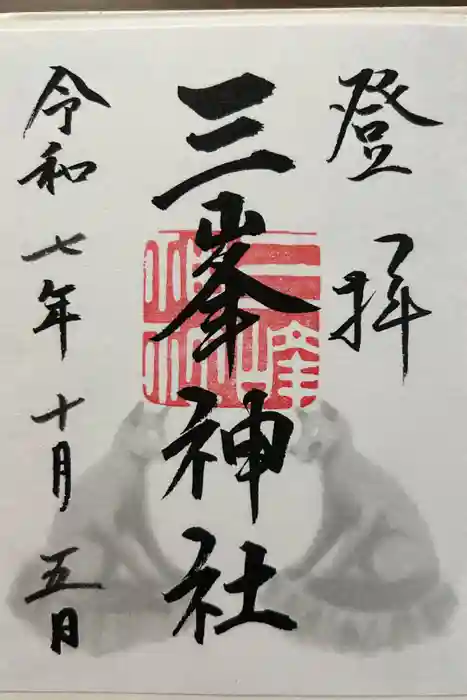 登拝
三峯神社
令和七年十月五日
三峰神社